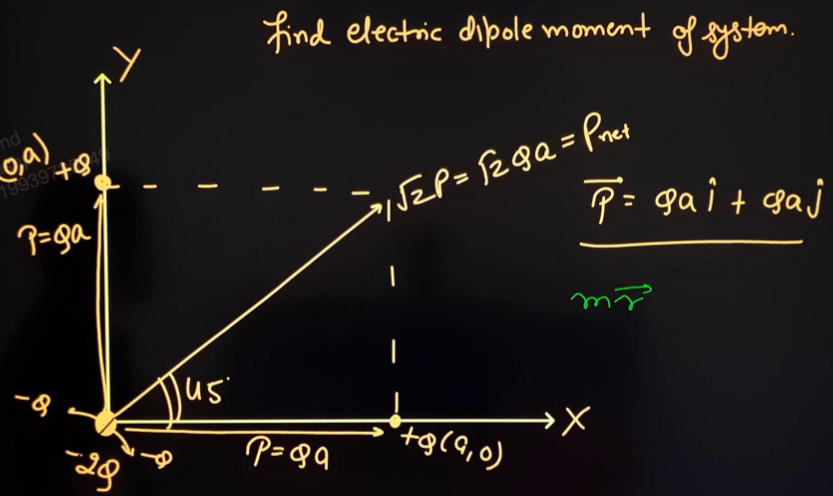 find electric dipole moment of system.
Y
(0,a) +Q
P=Qa
√2P = √2 Qa = Pnet
P⃗ = Qa î + Qa ĵ
m r⃗
45°
-Q
-2Q
-Q
P = Qa
+Q(a,0)
X